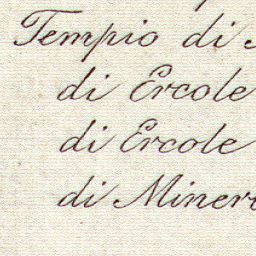 Tempio di
di Ercole
di Ercole
di